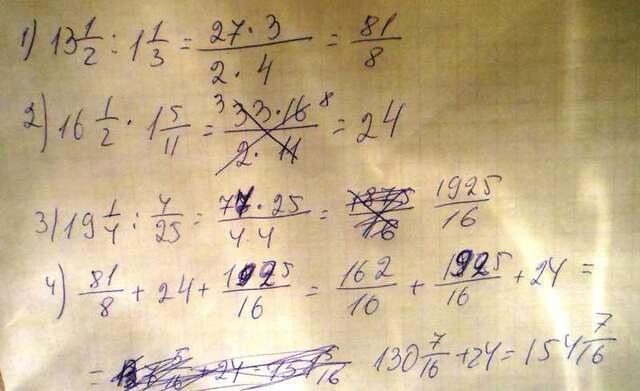 1) 13 1/2 : 1 1/3 = 27·3/2·4 = 81/8
2) 16 1/2 · 1 5/11 = 3 33·16 8/2·11 = 24
3) 19 1/4 : 4/25 = 77·25/4·4 = 1875/16 1925/16
4) 81/8 + 24 + 1925/16 = 162/16 + 1925/16 + 24 =
= 130 7/16 + 24 = 154 7/16